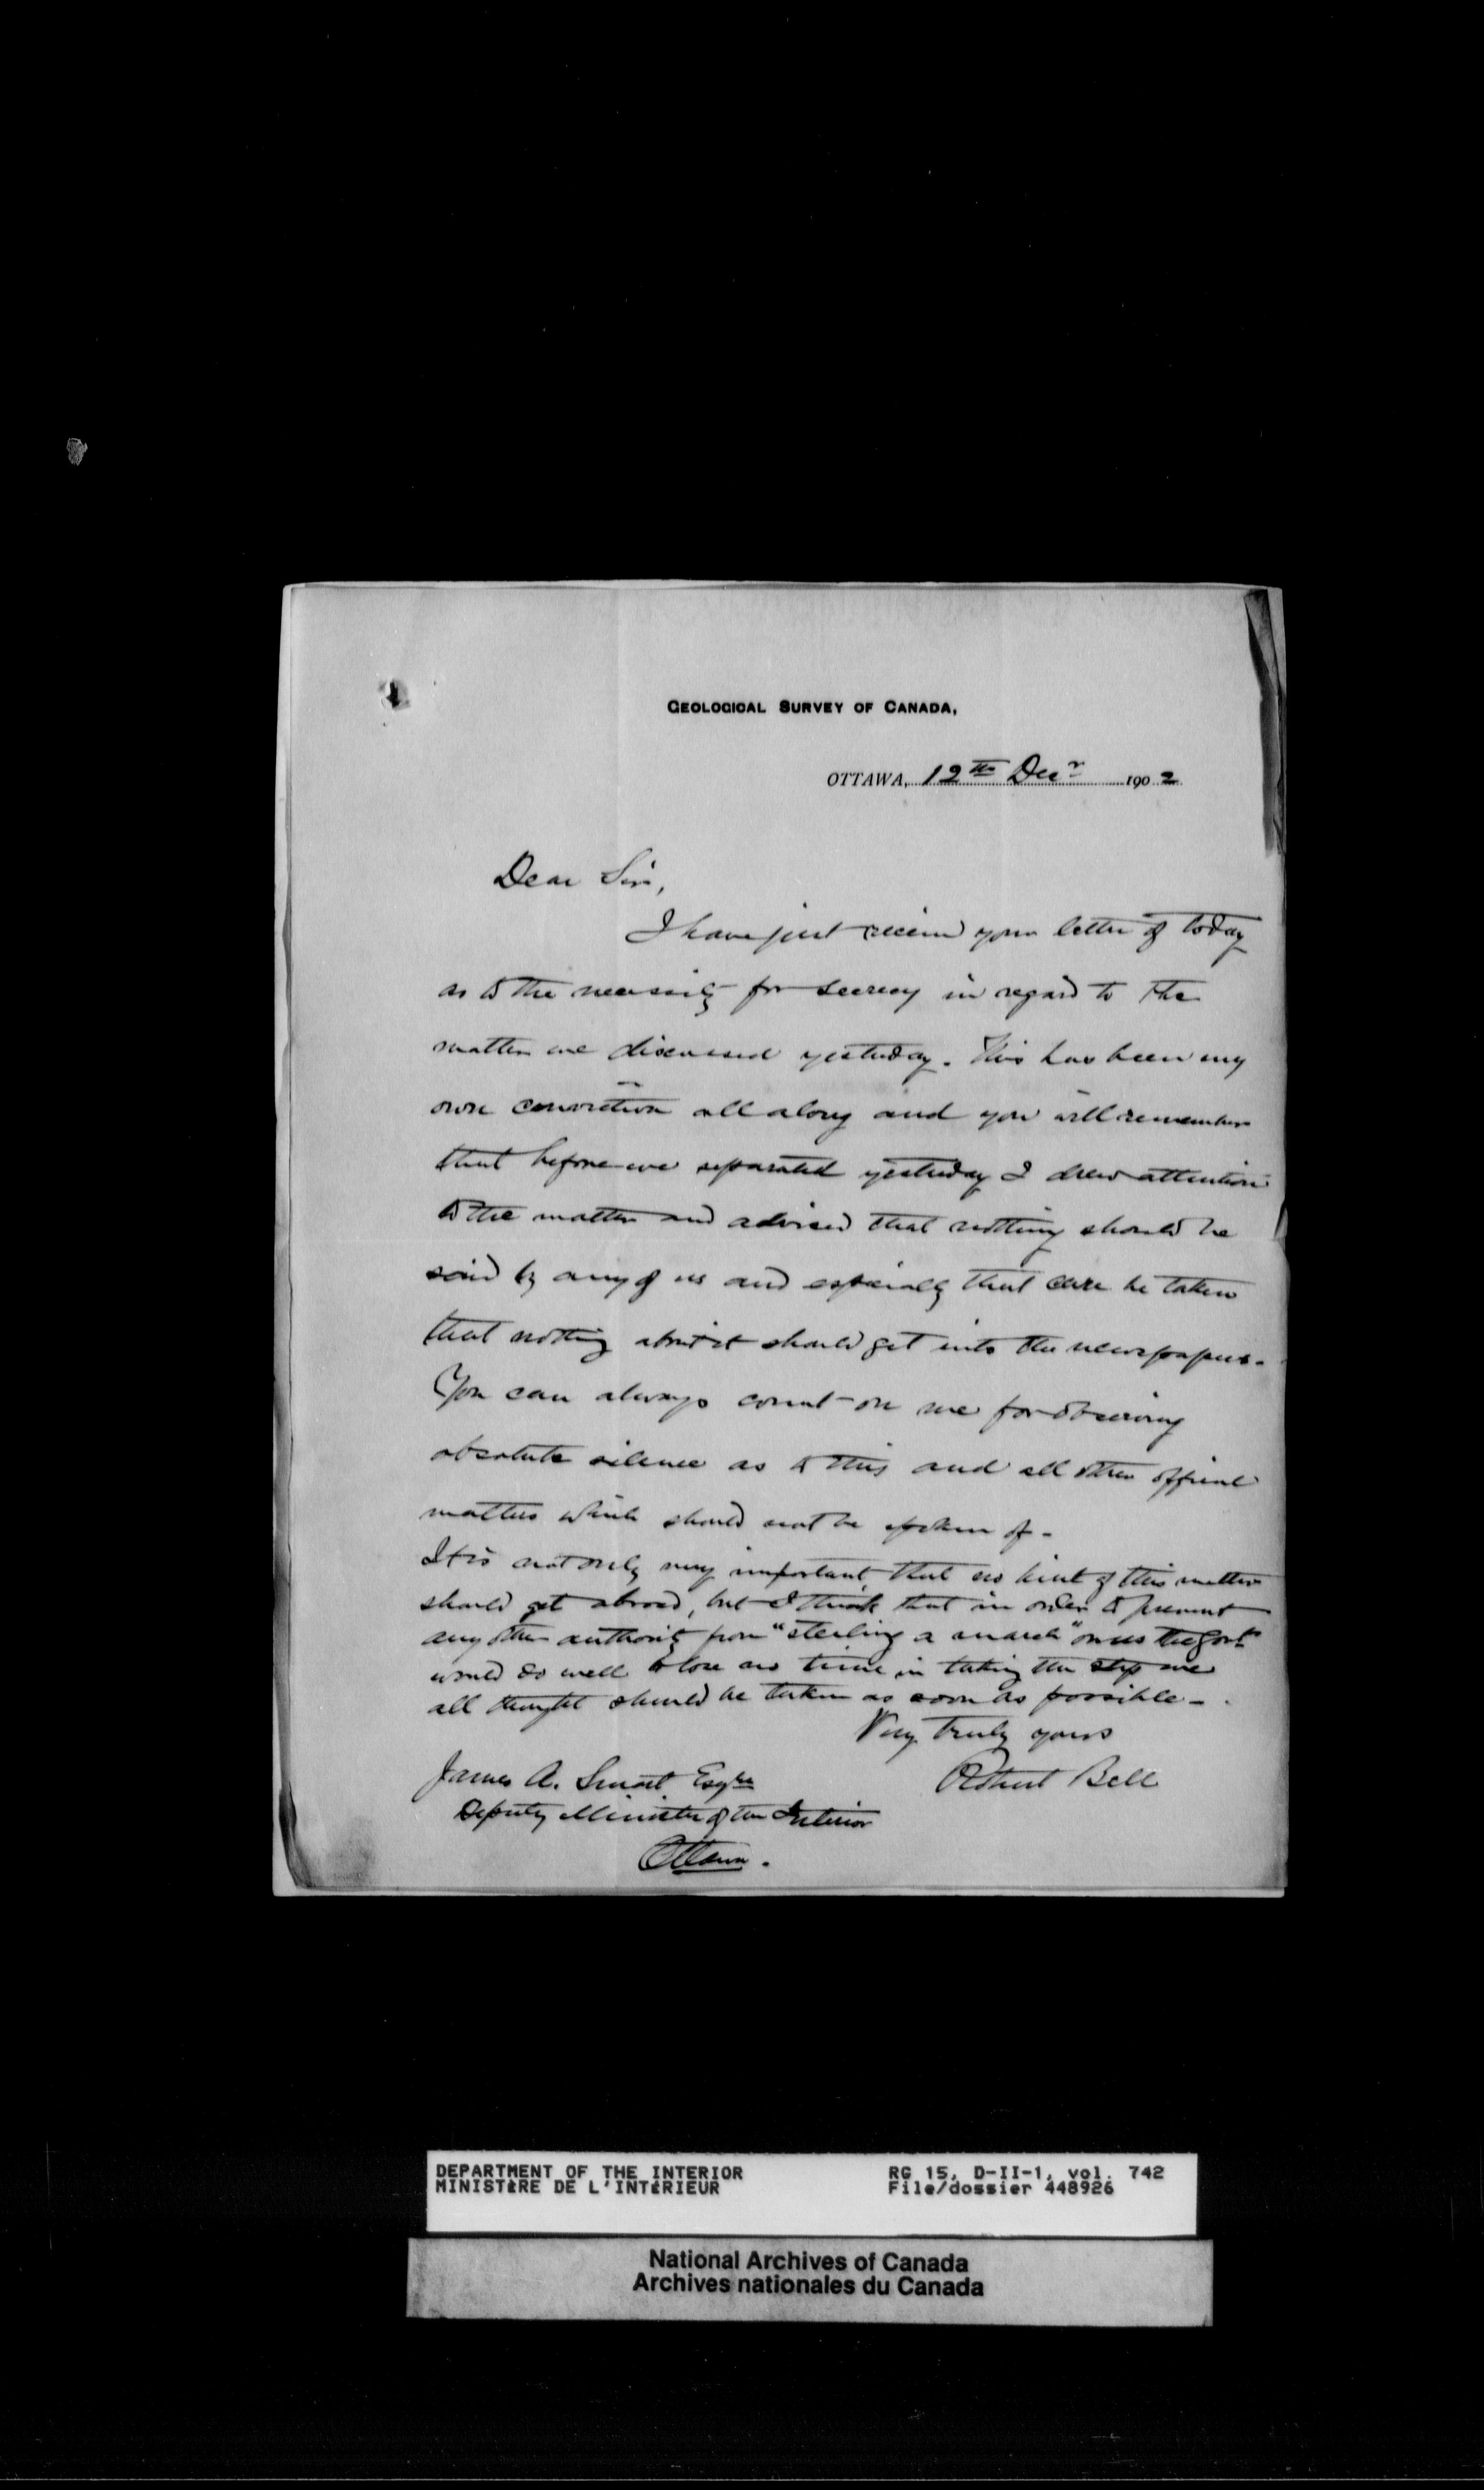 GEOLOGICAL SURVEY OF CANADA,
OTTAWA, 12th Decr 1902
Dear Sir,
I have just received your letter of today
as to the necessity for secrecy in regard to the
matter we discussed yesterday. This has been my
own conviction all along and you will remember
that before we separated yesterday I drew attention
to the matter and advised that nothing should be
said by any of us and especially that care be taken
that nothing about it should get into the newspapers.
You can always count on me for observing
absolute silence as to this and all other official
matters which should not be spoken of -
It is not only very important that no hint of this matter
should get abroad, but I think that in order to prevent
any other authority from "stealing a march" on us the Govt
would do well to lose no time in taking the step we
all thought should be taken as soon as possible -
Very truly yours
Robert Bell
James A. Smart Esqre
Deputy Minister of the Interior
Ottawa.
DEPARTMENT OF THE INTERIOR RG 15, D-II-1, vol. 742
MINISTÈRE DE L'INTÉRIEUR File/dossier 448926
National Archives of Canada
Archives nationales du Canada